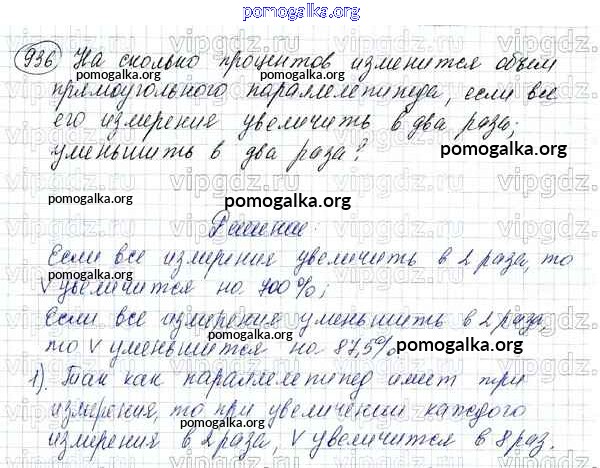 pomogalka.org
936. На сколько процентов изменится объем
pomogalka.org pomogalka.org
прямоугольного параллелепипеда, если все
его измерения увеличить в два раза;
уменьшить в два раза?
pomogalka.org
pomogalka.org
pomogalka.org
Решение:
Если все измерения увеличить в 2 раза, то
pomogalka.org
V увеличится на 700%;
Если все измерения уменьшить в 2 раза,
pomogalka.org
то V уменьшится на 87,5%
pomogalka.org
1). Так как параллелепипед имеет три
измерения, то при увеличении каждого
измерения в 2 раза, V увеличится в 8 раз.
pomogalka.org